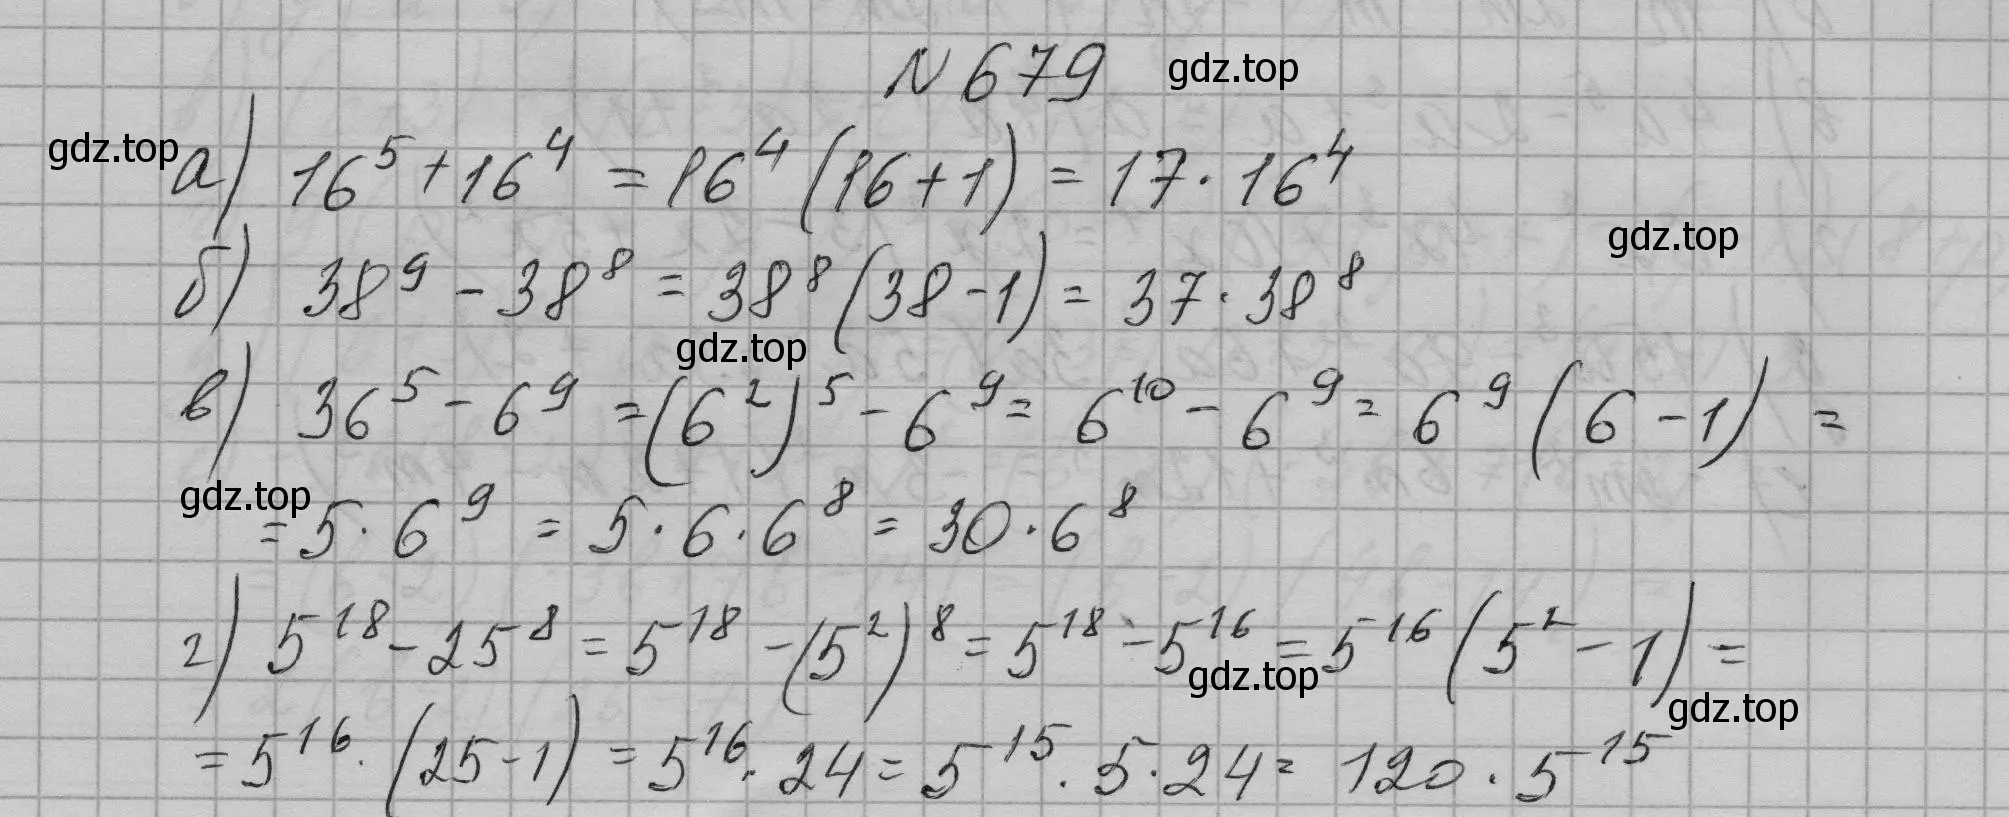 № 679 gdz.top
gdz.top а) 16⁵ + 16⁴ = 16⁴ (16 + 1) = 17 · 16⁴
gdz.top
б) 38⁹ - 38⁸ = 38⁸ (38 - 1) = 37 · 38⁸
gdz.top
в) 36⁵ - 6⁹ = (6²)⁵ - 6⁹ = 6¹⁰ - 6⁹ = 6⁹ (6 - 1) =
gdz.top
= 5 · 6⁹ = 5 · 6 · 6⁸ = 30 · 6⁸
г) 5¹⁸ - 25⁸ = 5¹⁸ - (5²)⁸ = 5¹⁸ - 5¹⁶ = 5¹⁶ (5² - 1) =
gdz.top
gdz.top
= 5¹⁶ · (25 - 1) = 5¹⁶ · 24 = 5¹⁵ · 5 · 24 = 120 · 5¹⁵